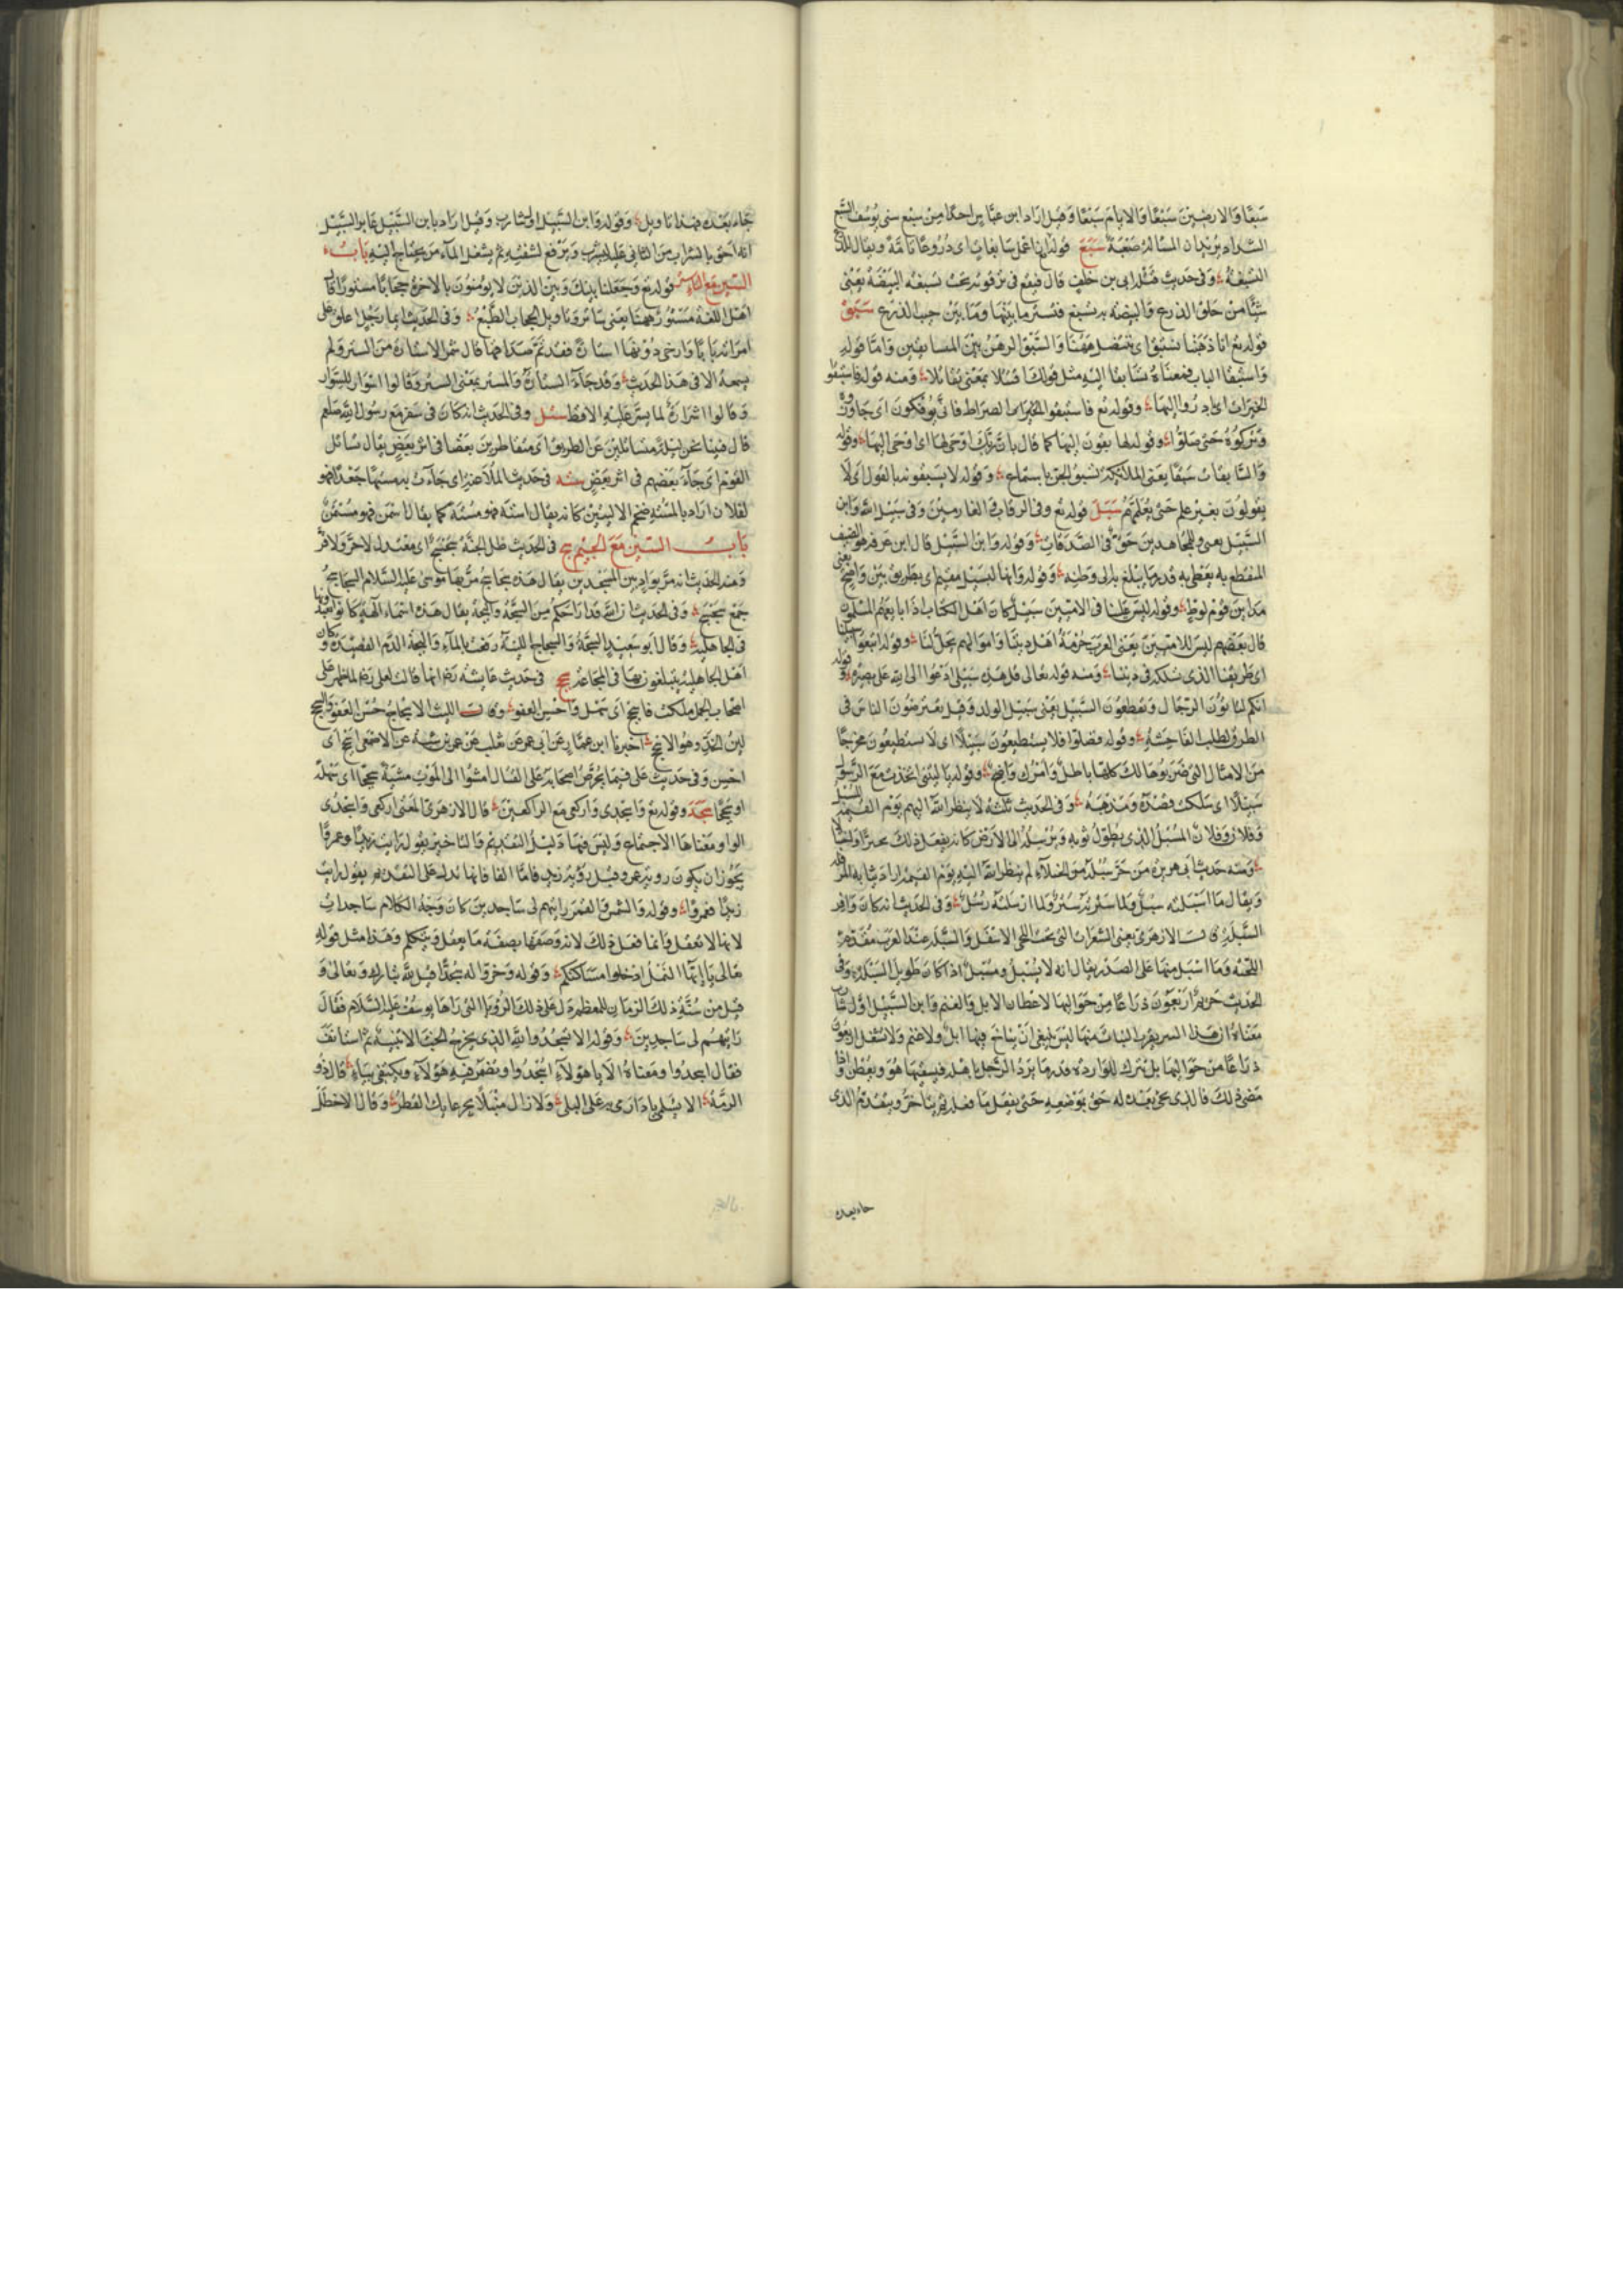 سَبْعًا وَالارضين سَبْعًا وَالايام سَبْعًا وَقيل اراد ابن عباس احكامن سبع سنى يوسف السبع
الشداد يريد ان المسالة صعبة سَبَغَ قوله ان اعمل سابغات اى دروعا تامة ويقال للدرع
السبغة وفى حديث قتله ابى بن خلف قال فيقع فى ترقوته تحت تسبغة البيضة يعنى
شيئا من حلق الدرع والبيضة به تسبغ فتستر ما بينها وما بين جيب الدرع سَبَقَ
قوله تع انا ذهبنا نستبق اى ننتضل ههنا والسبق الرهن بين المسابقين واما قوله
واستبقا الباب فمعناه تسابقا اليه مثل قولك اقتتلا بمعنى تقاتلا ومنه قوله فاستبقوا
الخيرات اى بادروا اليها وقوله تع فاستبقوا الصراط فانى يبصرون اى جاوزوه
وتركوه حتى ضلوا وقوله لها سابقون اليها كما قال بان ربك اوحى لها اى اوحى اليها وقوله
والسابقات سبقا يعنى الملائكة تسبق الجن باستماع وقوله لا يسبقونه بالقول اى لا
يقولون بغير علم حتى يعلمهم سَبَلَ قوله تع وفى الرقاب والغارمين وفى سبيل الله وابن
السبيل يعنى وللمجاهدين حق فى الصدقات وقوله وابن السبيل قال ابن عرفة هو الضيف
المنقطع به يعطى به قدر ما يبلغ به الى وطنه وقوله وانها لبسبيل مقيم اى بطريق بين واضح يعنى
مداين قوم لوط وقوله ليس علينا فى الاميين سبيل كان اهل الكتاب اذا بايعهم المسلمون
قال بعضهم ليس للاميين يعنى العرب حرمة اهل ديننا واموالهم تحل لنا وقوله اتبعوا سبيلنا
اى طريقنا الذى نسلكه فى ديننا ومنه قوله تعالى قل هذه سبيلى ادعوا الى الله على بصيرة وقوله
انكم لتاتون الرجال وتقطعون السبيل يعنى سبيل الولد وقيل تعترضون الناس فى
الطرق لطلب الفاحشة وقوله فضلوا فلا يستطيعون سبيلا اى لا يستطيعون مخرجا
من الامثال التى ضربوها لك كلها باطل وامرك واضح وقوله يا ليتنى اتخذت مع الرسول
سبيلا اى سلكت قصده ومذهبه وفى الحديث ثلثة لا ينظر الله اليهم يوم القيمة المسبل
وفلان وفلان المسبل الذى يطول ثوبه ويرسله الى الارض كانه يفعل ذلك تجبرا واختيالا
ومنه حديث ابى هريرة من جر سبله من الخيلاء لم ينظر الله اليه يوم القيمة اراد ثيابه المرسلة
ويقال ما اسبلته سبل ولما سترته ستر ولما ارسلته رسل وفى الحديث انه كان وافر
السبلة قال الازهرى يعنى الشعرات التى تحت اللحى الاسفل والسبلة عند العرب مقدم
اللحية وما اسبل منها على الصدر يقال انه لاسبل ومسبل اذا كان طويل السبلة وفى
الحديث حريم اربعون ذراعا من حواليها لاعطان الابل والغنم وابن السبيل اول شارب
معناه ان هذا البير بقرب النبات منها ليس ينبغى ان يناخ فيها ابل ولا غنم ولا تشغل اربعون
ذراعا من حواليها بل تترك للواردة قدر ما يرد الرجل بابله فيسقيها هو ويعطن واذا
مضى ذلك فالذى يجئ بعده له حق بموضعه حتى يفعل ما فعل ثم يتاخر ويتقدم الذى
جاء بعده
جاء بعده فهذا تاويل وقوله وابن السبيل اول شارب وقيل اراد بابن السبيل عابر السبيل
انه احق بالشراب من التانى عليه يشرب ويرفع لشفته ثم يشغل الماء من يحتاج اليه باب
السين مع التاء ستر قوله تع وجعلنا بينك وبين الذين لا يومنون بالاخرة حجابا مستورا قال
اهل اللغة مستور ههنا يعنى ساتر وتاويل الحجاب الطبع وفى الحديث ايما رجل اغلق على
امراته بابا وارخى دونها استارة فقد تم صداقها قال شمر الاستارة من الستر ولم
يسمعه الا فى هذا الحديث وقد جاءت الستارة والمستر بمعنى الستر وقالوا اسوار للسوار
وقالوا اشرارة لما يشر عليه الاقط ستل وفى الحديث انه كان فى سفر مع رسول الله صلعم
قال فبينا نحن ليلة متساتلين عن الطريق اى متقاطرين بعضنا فى اثر بعض يقال تساتل
القوم اى جاء بعضهم فى اثر بعض سته فى حديث الملاعنة اى جاءت به مستها جعدا فهو
لفلان اراد بالمسته ضخم الاليتين كانه يقال استه فهو مسته كما يقال اسمن فهو مسمن
باب السين مع الجيم سج فى الحديث ظل الجنة سجسج اى معتدل لا حر ولا قر
ومنه الحديث انه مر بواد بين المسجدين يقال هذه سجاسج مر بها موسى عليه السلام السجاسج
جمع سجسج وفى الحديث ان الله قد اراحكم من السجة والبجة يقال هذه اسماء الهة كانوا يعبدونها
فى الجاهلية وقال ابو سعيد السجة والسجاج اللبنة رقت بالماء والبجة الدم الفصيد وكان
اهل الجاهلية يتبلغون بها فى المجاعة سجح فى حديث عايشة رضى انها قالت لعلى رضى لما ظهر على
اصحاب الجمل ملكت فاسجح اى سهل واحسن العفو وقال الليث الاسجاح حسن العفو والسجح
لين الخد وهو الاسجح اخبرنا ابن عمار عن ابى عمر عن ثعلب عن عمر بن شبة عن الاصمعى اسجح اى
احسن وفى حديث على فيما يحرض اصحابه على القتال امشوا الى الموت مشية سجحا اى سهلة
او سجحا سَجَدَ وقوله تع واسجدى واركعى مع الراكعين قال الازهرى المعنى اركعى واسجدى
الواو معناها الاجتماع وليس فيها دليل التقديم والتاخير يقول رايت زيدا وعمرا
يجوز ان يكون روية عمرو قبل روية زيد فاما الفا فانها تدل على التقديم يقول رايت
زيدا فعمرا وقوله والشمس والقمر رايتهم لى ساجدين كان وجه الكلام ساجدات
لانها لا تعقل وانما فعل ذلك لانه وصفها بصفة ما يعقل ويتكلم وهذا مثل قوله
تعالى يا ايها النمل ادخلوا مساكنكم وقوله وخروا له سجدا قيل لله تبارك وتعالى و
قيل من سنة ذلك الزمان للمعظم دل على ذلك الرويا التى راها يوسف عليه السلام فقال
رايتهم لى ساجدين وقوله الا تسجدوا لله الذى يخرج الخبا الا تنبيه ثم استانف
فقال اسجدوا ومعناه الا يا هولاء اسجدوا وتضمر فيه هولاء ويكتفى بياء قال ذو
الرمة الا يسلمى يا دار مى على البلى ولا زال منهلا بجرعايك القطر وقال الاخطل